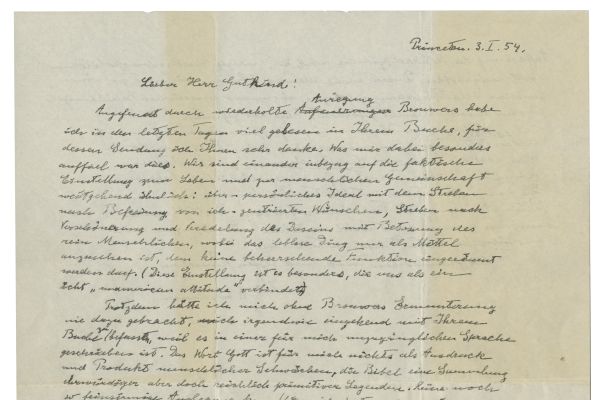 Princeton. 3. I. 54.
Lieber Herr Gutkind!
Anregung
Angefeuert durch wiederholte Brouwers habe
ich in den letzten Tagen viel gelesen in Ihrem Buche, für
dessen Sendung ich Ihnen sehr danke. Was mir dabei besonders
auffiel war dies. Wir sind einander inbezug auf die faktische
Einstellung zum Leben und zur menschlichen Gemeinschaft
weitgehend ähnlich: über-persönliches Ideal mit dem Streben
nach Befreiung von ich-zentrierten Wünschen, Streben nach
Verschönerung und Veredelung des Daseins mit Betonung des
rein Menschlichen, wobei das leblose Ding nur als Mittel
anzusehen ist, dem keine beherrschende Funktion eingeräumt
werden darf. (Diese Einstellung ist es besonders, die uns als ein
echt „unamerican attitude" verbindet)
Trotzdem hätte ich mich ohne Brouwers Ermunterung
nie dazu gebracht, mich irgendwie eingehend mit Ihrem
Buche zu befassen, weil es in einer für mich unzugänglichen Sprache
geschrieben ist. Das Wort Gott ist für mich nichts als Ausdruck
und Produkt menschlicher Schwächen, die Bibel eine Sammlung
ehrwürdiger aber doch reichlich primitiver Legenden. Keine noch
so feinsinnige Auslegung